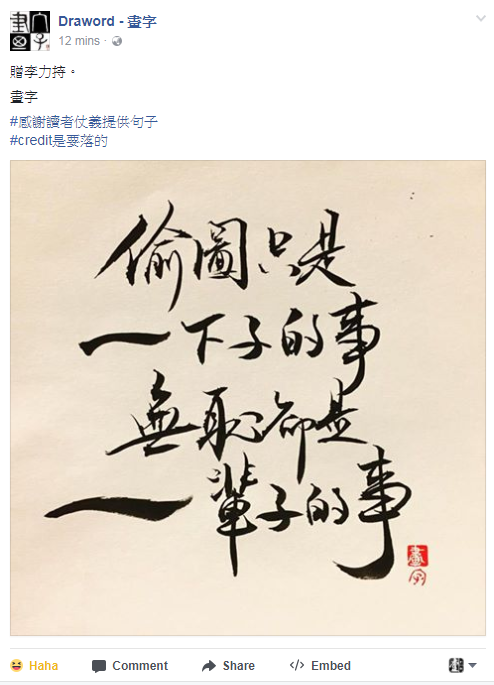 Draword - 畫字
12 mins ·
贈李力持。
畫字
#感謝讀者仗義提供句子
#credit是要落的
偷圖只是
一下子的事
無恥卻是
一輩子的事
畫字
Haha
Comment
Share
Embed